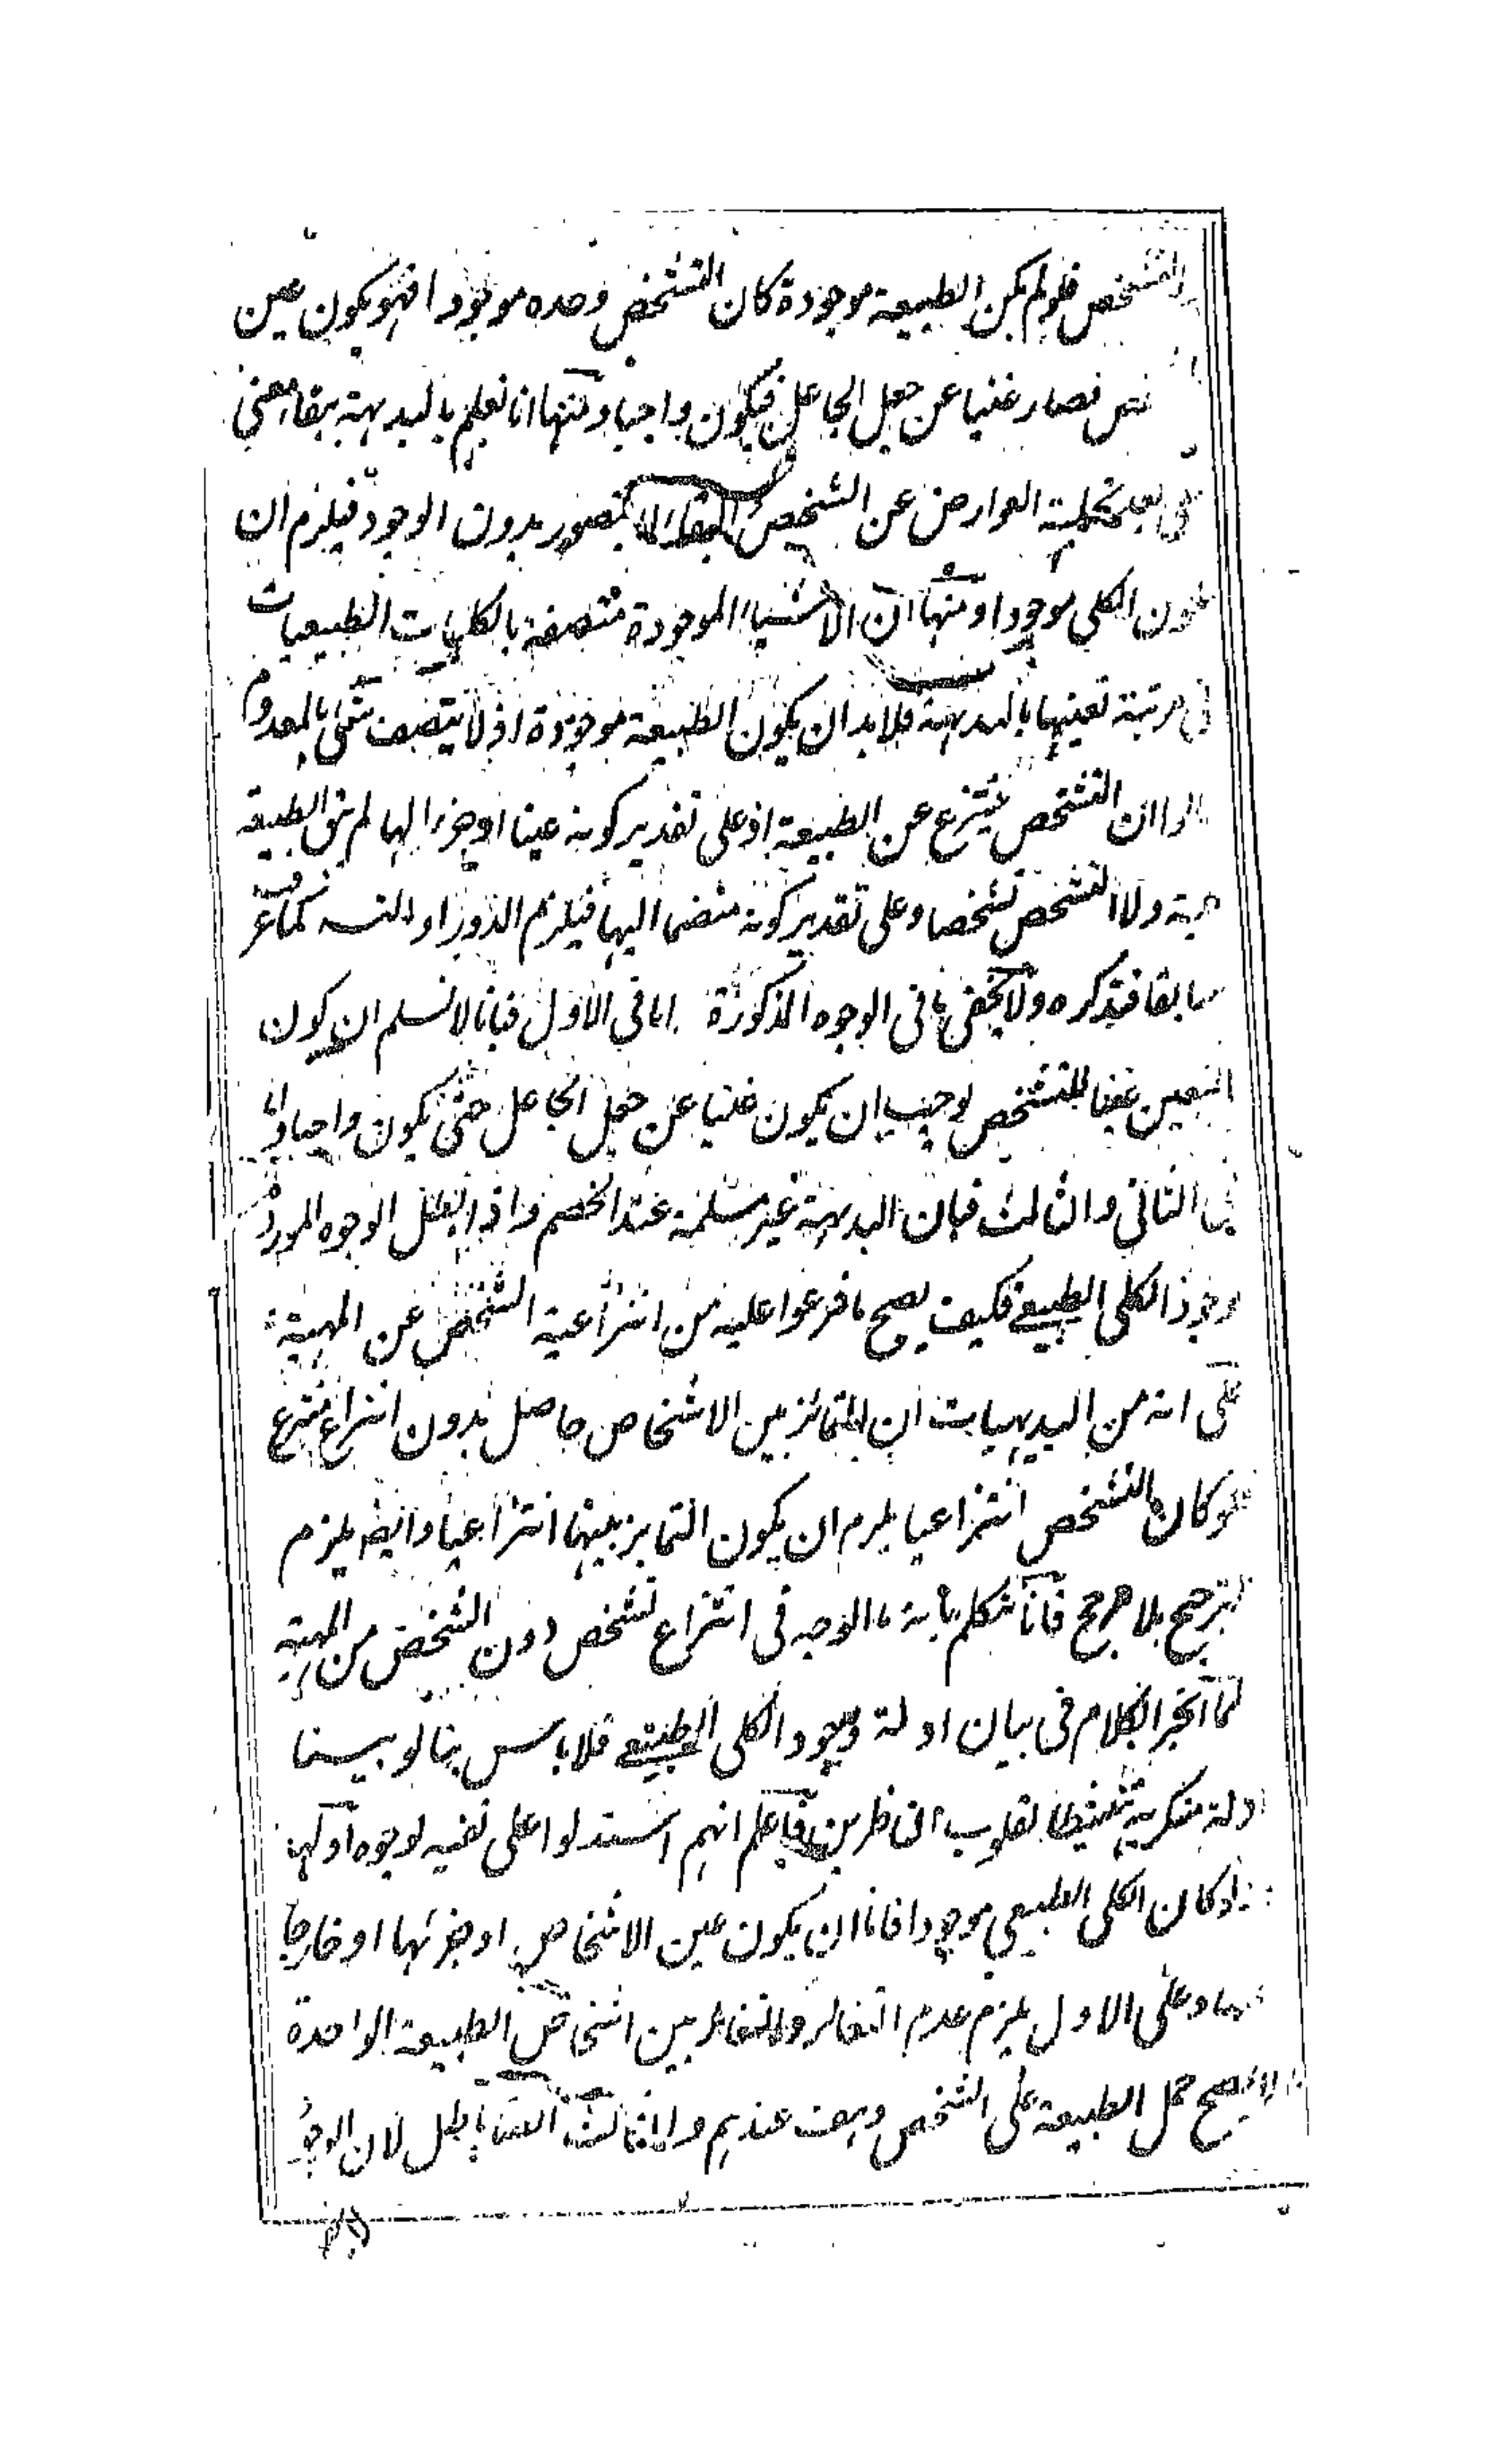 التشخص فلو لم يكن الطبيعة موجودة كان التشخص وحده موجودا فهو يكون عين
فصار غنيا عن جعل الجاعل فيكون واجبا ومنها انا نعلم بالبديهة بقاء معنى
بعد تخلية العوارض عن الشخص والبقاء لا يتصور بدون الوجود فيلزم ان
يكون الكلى موجودا ومنها ان الاشياء الموجودة متصفة بالكليات الطبيعيات
فى مرتبة تعينها بالبديهة فلابد ان يكون الطبيعة موجودة اذ لا يتصف شئ بالمعدوم
ان التشخص منتزع عن الطبيعة اذ على تقدير كونه عينا او جزء الها لم تبق الطبيعة
ولا التشخص تشخصا وعلى تقدير كونه منضما اليها فيلزم الدور او التسـ كما عرفت
سابقا فتذكره ولا يخفى ما فى الوجوه المذكورة اما فى الاول فبانا لا نسلم ان كون
التعين عينا للتشخص يوجب ان يكون غنيا عن جعل الجاعل حتى يكون واجبا واما
فى الثانى والثالث فبان البديهة غير مسلمة عند الخصم واذا بطل الوجوه الموردة
وجود الكلى الطبيعى فكيف يصح ما فرعوا عليه من انتزاعية الشخص عن المهية
على انه من البديهيات ان التمائز بين الاشخاص حاصل بدون انتزاع منتزع
فلو كان التشخص انتزاعيا يلزم ان يكون التمايز بينها انتزاعيا وايضا يلزم
الترجيح بلا مرجح فانا نتكلم بانه ما الوجه فى انتزاع تشخص دون الشخص من المهية
لما انجر الكلام فى بيان ادلة وجود الكلى الطبيعى فلا باس بنا لو بينا
ادلة منكريه تنشيطا لقلوب الناظرين فاعلم انهم استدلوا على نفيه لوجوه اولها
لو كان الكلى الطبيعى موجودا فاما ان يكون عين الاشخاص او جزئها او خارجا
وعلى الاول يلزم عدم التغائر والتغائر بين اشخاص الطبيعة الواحدة
لا يصح حمل الطبيعة على الشخص وهف عندهم والثالث ايضا باطل لان الوجود